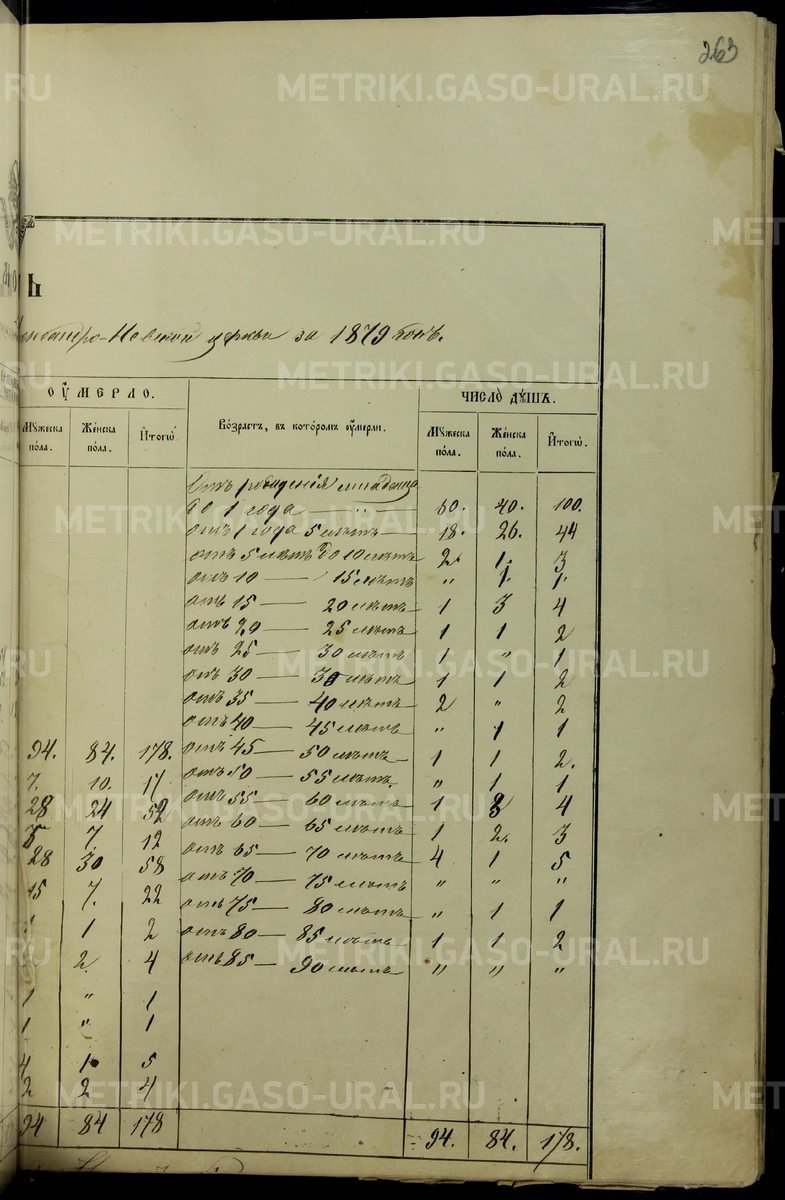 263
METRIKI.GASO-URAL.RU
ъ
Невской церкви за 1879 годъ.
ОУМЕРЛО.
Мужеска пола.
Женска пола.
Итогω
Возрастъ, въ которомъ оумерли.
ЧИСЛО ДУШЪ.
Мужеска пола.
Женска пола.
Итогω.
Отъ рожденія младенца
до 1 года — „ — 60. 40. 100.
отъ 1 года 5 лѣтъ — 18. 26. 44
отъ 5 лѣтъ до 10 лѣтъ 2. 1. 3
отъ 10 — 15 лѣтъ „ 1. 1.
отъ 15 — 20 лѣтъ 1 3 4
отъ 20 — 25 лѣтъ 1 1 2
отъ 25 — 30 лѣтъ 1 „ 1
отъ 30 — 35 лѣтъ 1 1 2
отъ 35 — 40 лѣтъ 2 „ 2
отъ 40 — 45 лѣтъ „ 1 1
94. 84. 178. отъ 45 — 50 лѣтъ 1 1 2.
7. 10. 17 отъ 50 — 55 лѣтъ „ 1 1
28 24 52 отъ 55 — 60 лѣтъ 1 3 4
5 7. 12 отъ 60 — 65 лѣтъ 1 2. 3
28 30 58 отъ 65 — 70 лѣтъ 4 1 5
15 7. 22 отъ 70 — 75 лѣтъ „ „ „
1 1 2 отъ 75 — 80 лѣтъ „ 1 1
2. 4 отъ 80 — 85 лѣтъ 1 1 2
отъ 85 — 90 лѣтъ „ „ „
1 „ 1
1 „ 1
4 1 5
2 2 4
94 84 178 94. 84. 178.